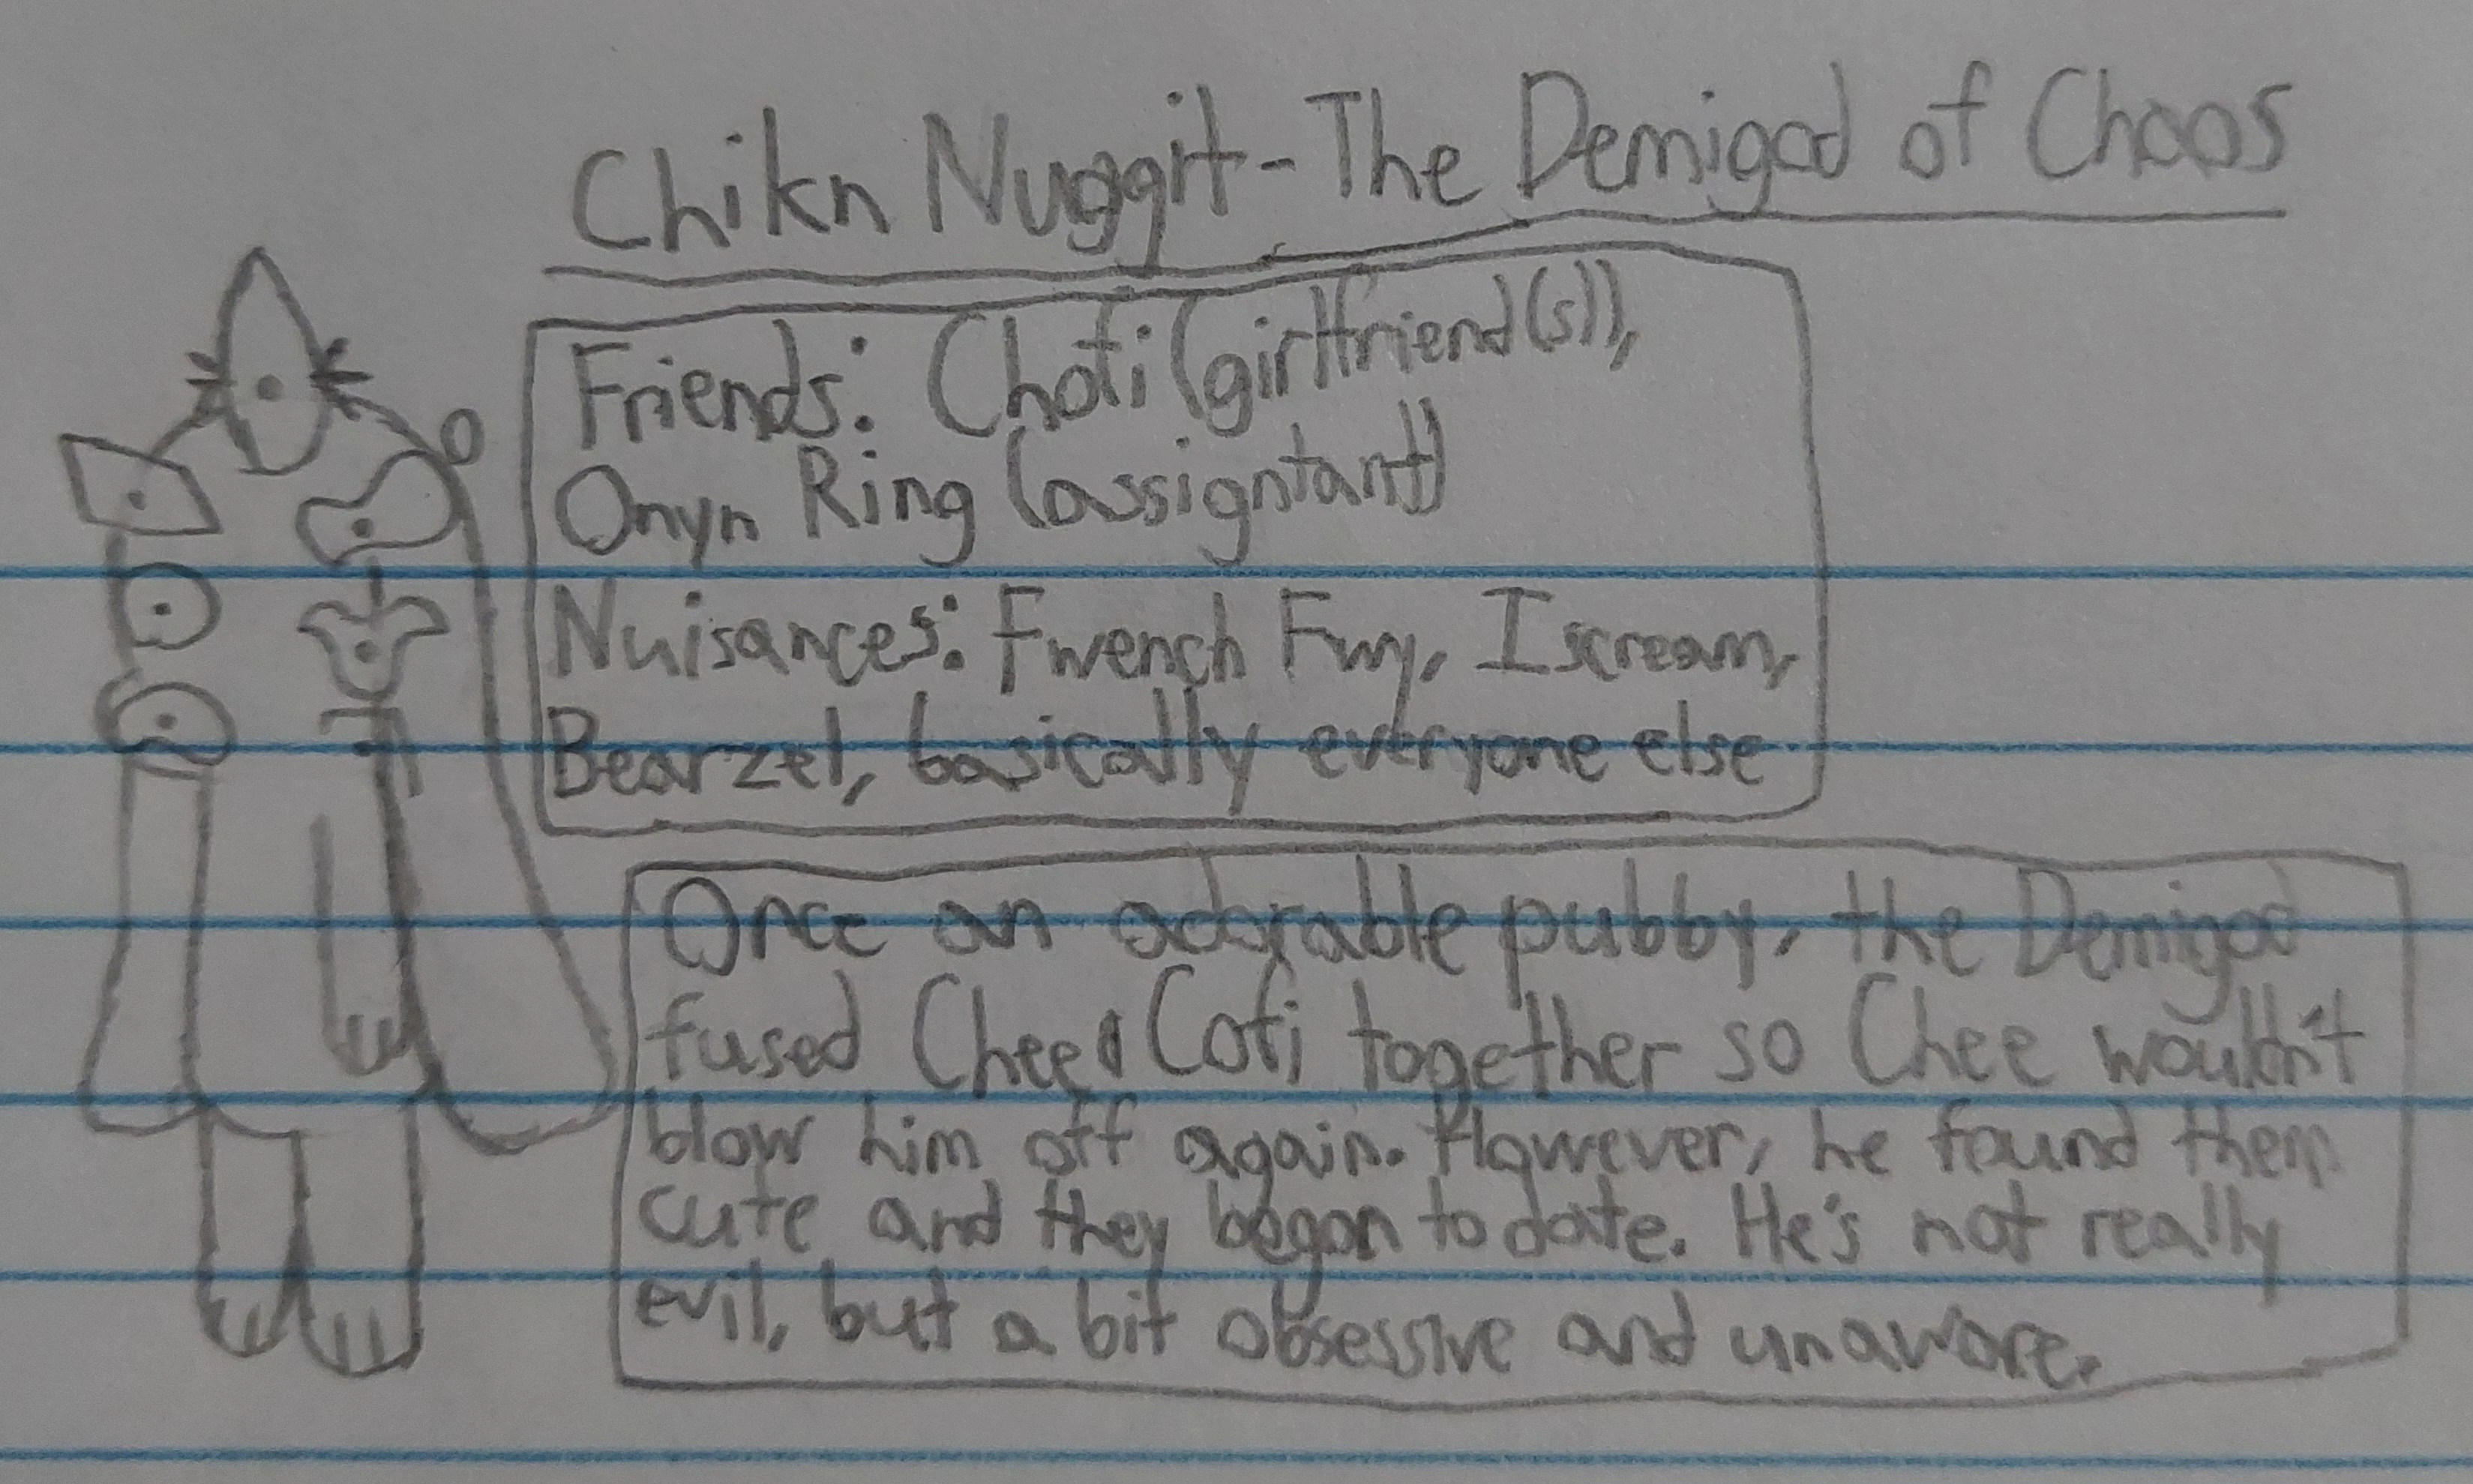 Chikn Nuggit-The Demigod of Chaos
Friends: Chofi (girlfriend(s)),
Onyn Ring (assigntant)
Nuisances: Fwench Fwy, Iscream,
Bearzel, basically everyone else
Once an adorable pubby, the Demigod
fused Chee & Cofi together so Chee wouldn't
blow him off again. However, he found them
cute and they began to date. He's not really
evil, but a bit obsessive and unaware.